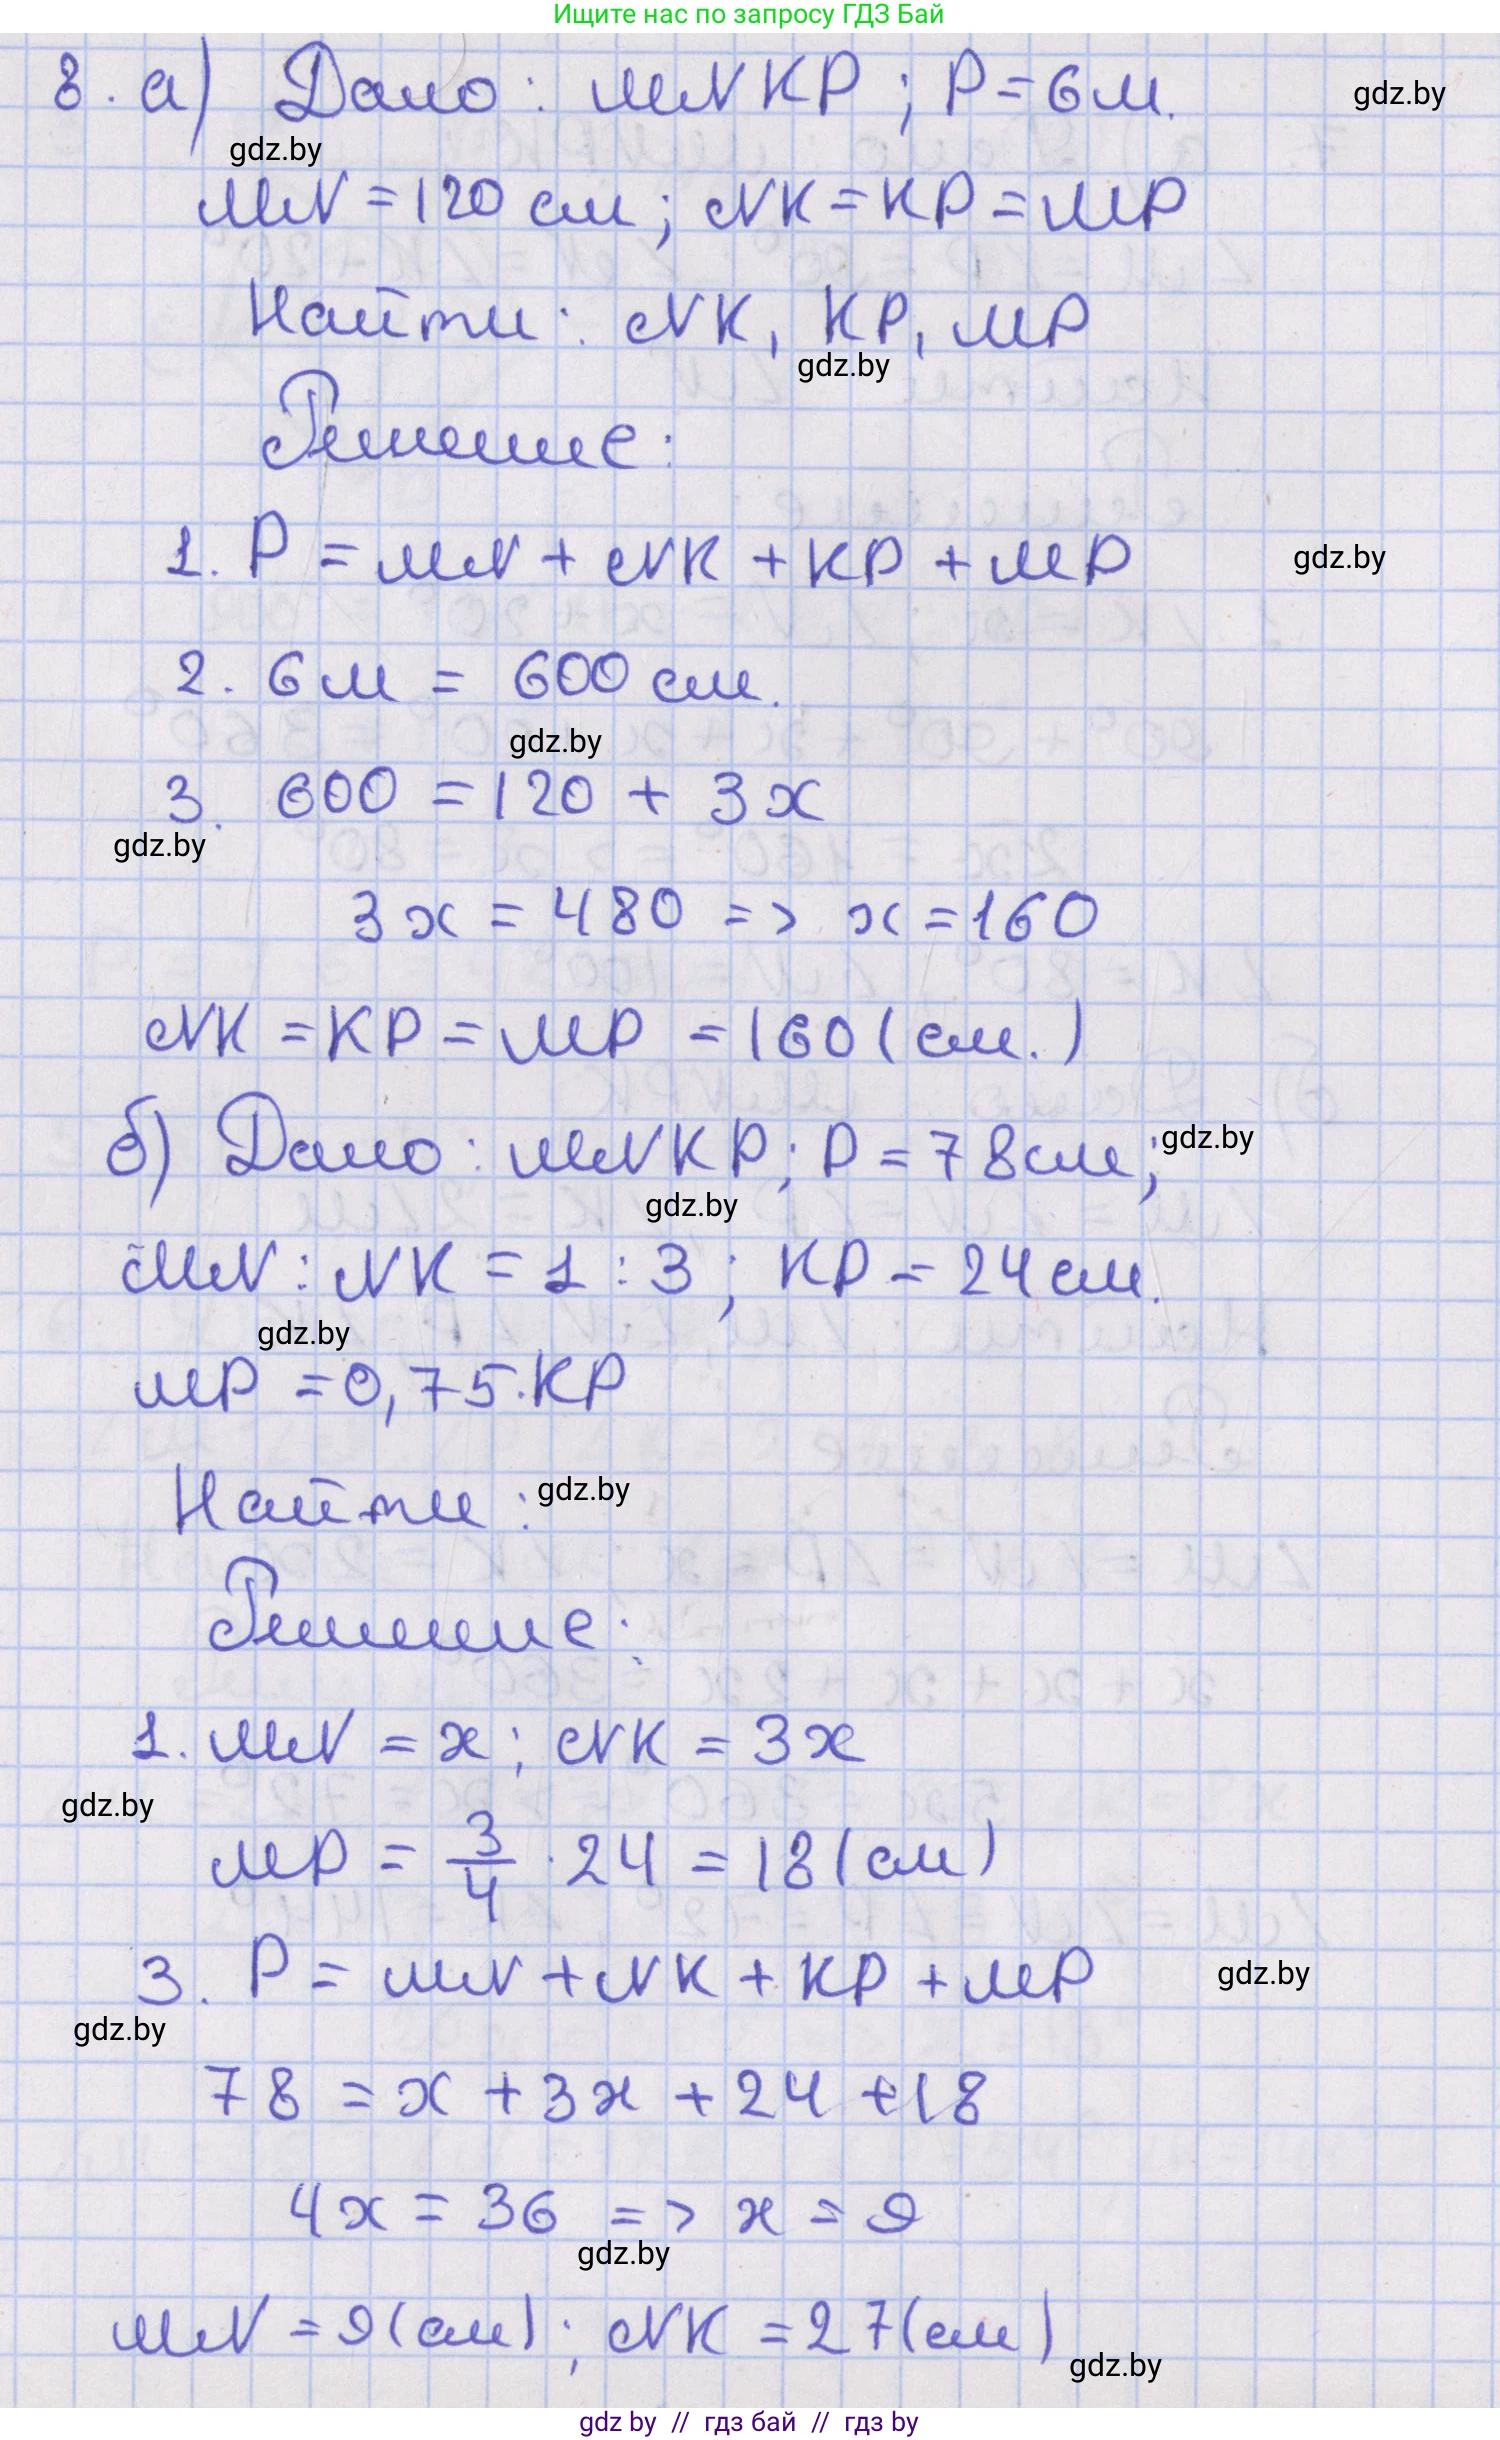 Ищите нас по запросу ГДЗ Бай
8. а) Дано: MNKP; P=6м.
gdz.by
gdz.by
MN = 120 см; NK = KP = MP
Найти: NK, KP, MP
gdz.by
Решение:
1. P = MN + NK + KP + MP
gdz.by
2. 6м = 600 см.
gdz.by
3. 600 = 120 + 3x
gdz.by
3x = 480 => x = 160
NK = KP = MP = 160 (см.)
б) Дано: MNKP; P = 78см;
gdz.by
gdz.by
MN : NK = 1 : 3; KP = 24см.
gdz.by
MP = 0,75·KP
Найти:
gdz.by
Решение:
1. MN = x; NK = 3x
gdz.by
MP = 3/4 · 24 = 18 (см)
3. P = MN + NK + KP + MP
gdz.by
gdz.by
78 = x + 3x + 24 + 18
4x = 36 => x = 9
gdz.by
MN = 9 (см); NK = 27 (см)
gdz.by
gdz by // гдз бай // гдз by